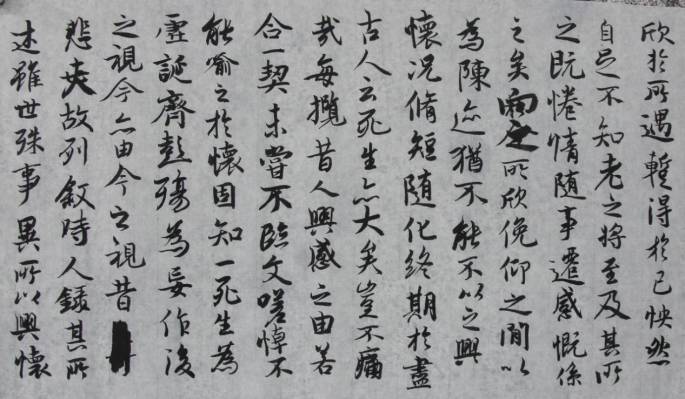 欣於所遇蹔得於己怏然
自足不知老之將至及其所
之既惓情隨事遷感慨係
之矣向之所欣俛仰之閒以
為陳迹猶不能不以之興
懷況脩短隨化終期於盡
古人云死生亦大矣豈不痛
哉每攬昔人興感之由若
合一契未嘗不臨文嗟悼不
能喻之於懷固知一死生為
虛誕齊彭殤為妄作後
之視今亦由今之視昔
悲夫故列敘時人錄其所
述雖世殊事異所以興懷